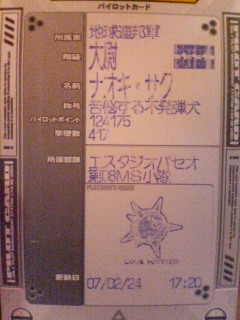 パイロットカード
所属軍 地球連邦軍
階級 大尉
名前 ナオキ・サク
称号 苦悩する不発弾犬
パイロットポイント 124175
撃墜数 417
所属部隊 エスタジオ・パセオ
第08MS小隊
PLATOON'S MARK
LOVE HAMMER
更新日 07/02/24 17:20
PILOT CARD